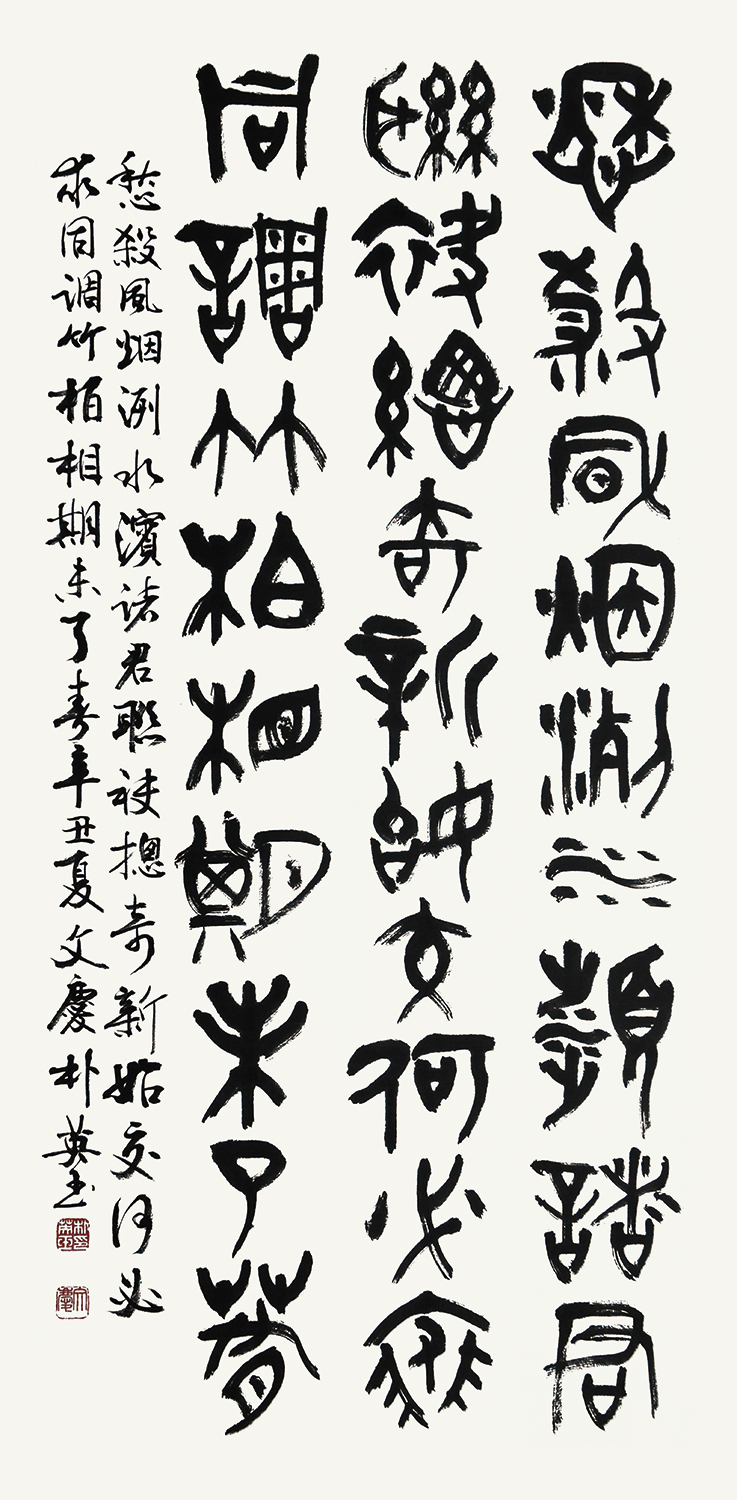 愁殺風烟洌水瀕諸君
聯袂總奇新始交何必求
同調竹柏相期未了春
愁殺風烟洌水濱諸君聯袂摠奇新始交何必
求同調竹栢相期未了春辛丑夏文慶朴英玉
文慶